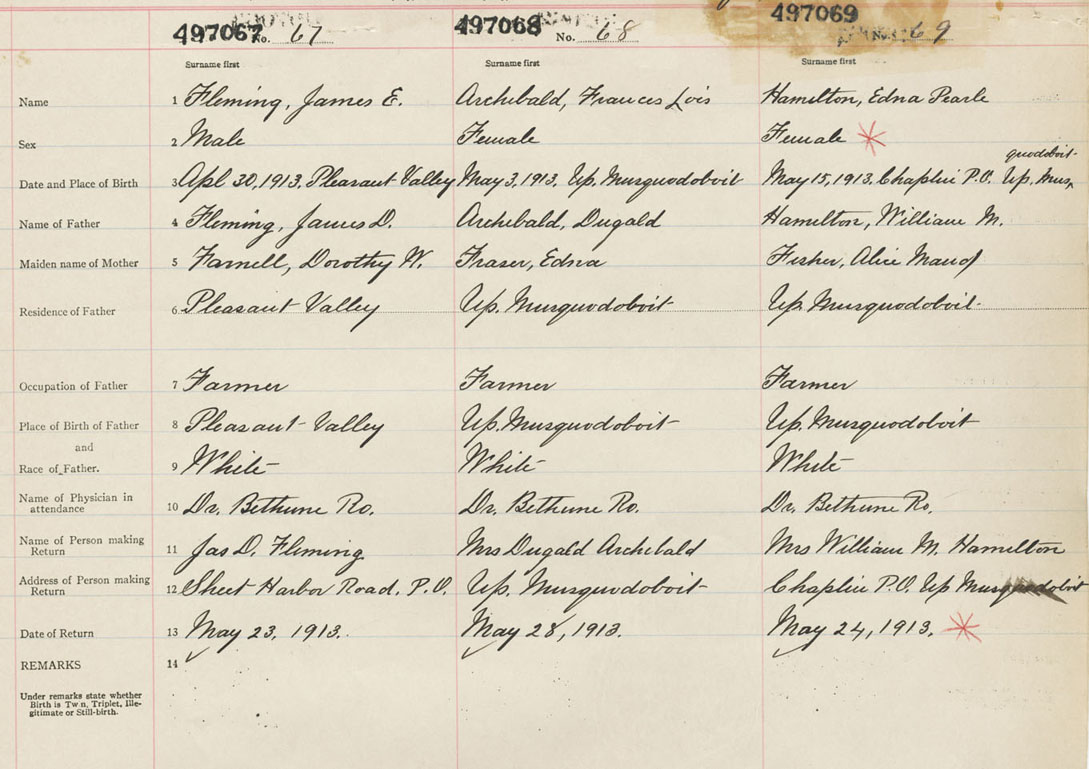 497067 No. 67 497068 No. 68 497069 No. 69
Surname first Surname first Surname first
Name 1 Fleming, James E. Archibald, Frances Lois Hamilton, Edna Pearle
Sex 2 Male Female Female
quodoboit
Date and Place of Birth 3 Apl 30, 1913. Pleasant Valley May 3, 1913. Up. Musquodoboit May 15, 1913. Chaplin P.O. Up. Mus,
Name of Father 4 Fleming, James D. Archibald, Dugald Hamilton, William M.
Maiden name of Mother 5 Farnell, Dorothy W. Fraser, Edna Fisher, Alice Maud
Residence of Father 6 Pleasant Valley Up. Musquodoboit Up. Musquodoboit
Occupation of Father 7 Farmer Farmer Farmer
Place of Birth of Father 8 Pleasant Valley Up. Musquodoboit Up. Musquodoboit
and
Race of Father. 9 White White White
Name of Physician in
attendance 10 Dr. Bethune Ro. Dr. Bethune Ro. Dr. Bethune Ro.
Name of Person making
Return 11 Jas D. Fleming Mrs Dugald Archibald Mrs William M. Hamilton
Address of Person making
Return 12 Sheet Harbor Road, P.O. Up. Musquodoboit Chaplin P.O. Up Musquodoboit
Date of Return 13 May 23, 1913. May 28, 1913. May 24, 1913.
REMARKS 14
Under remarks state whether
Birth is Twn, Triplet, Ille-
gitimate or Still-birth.